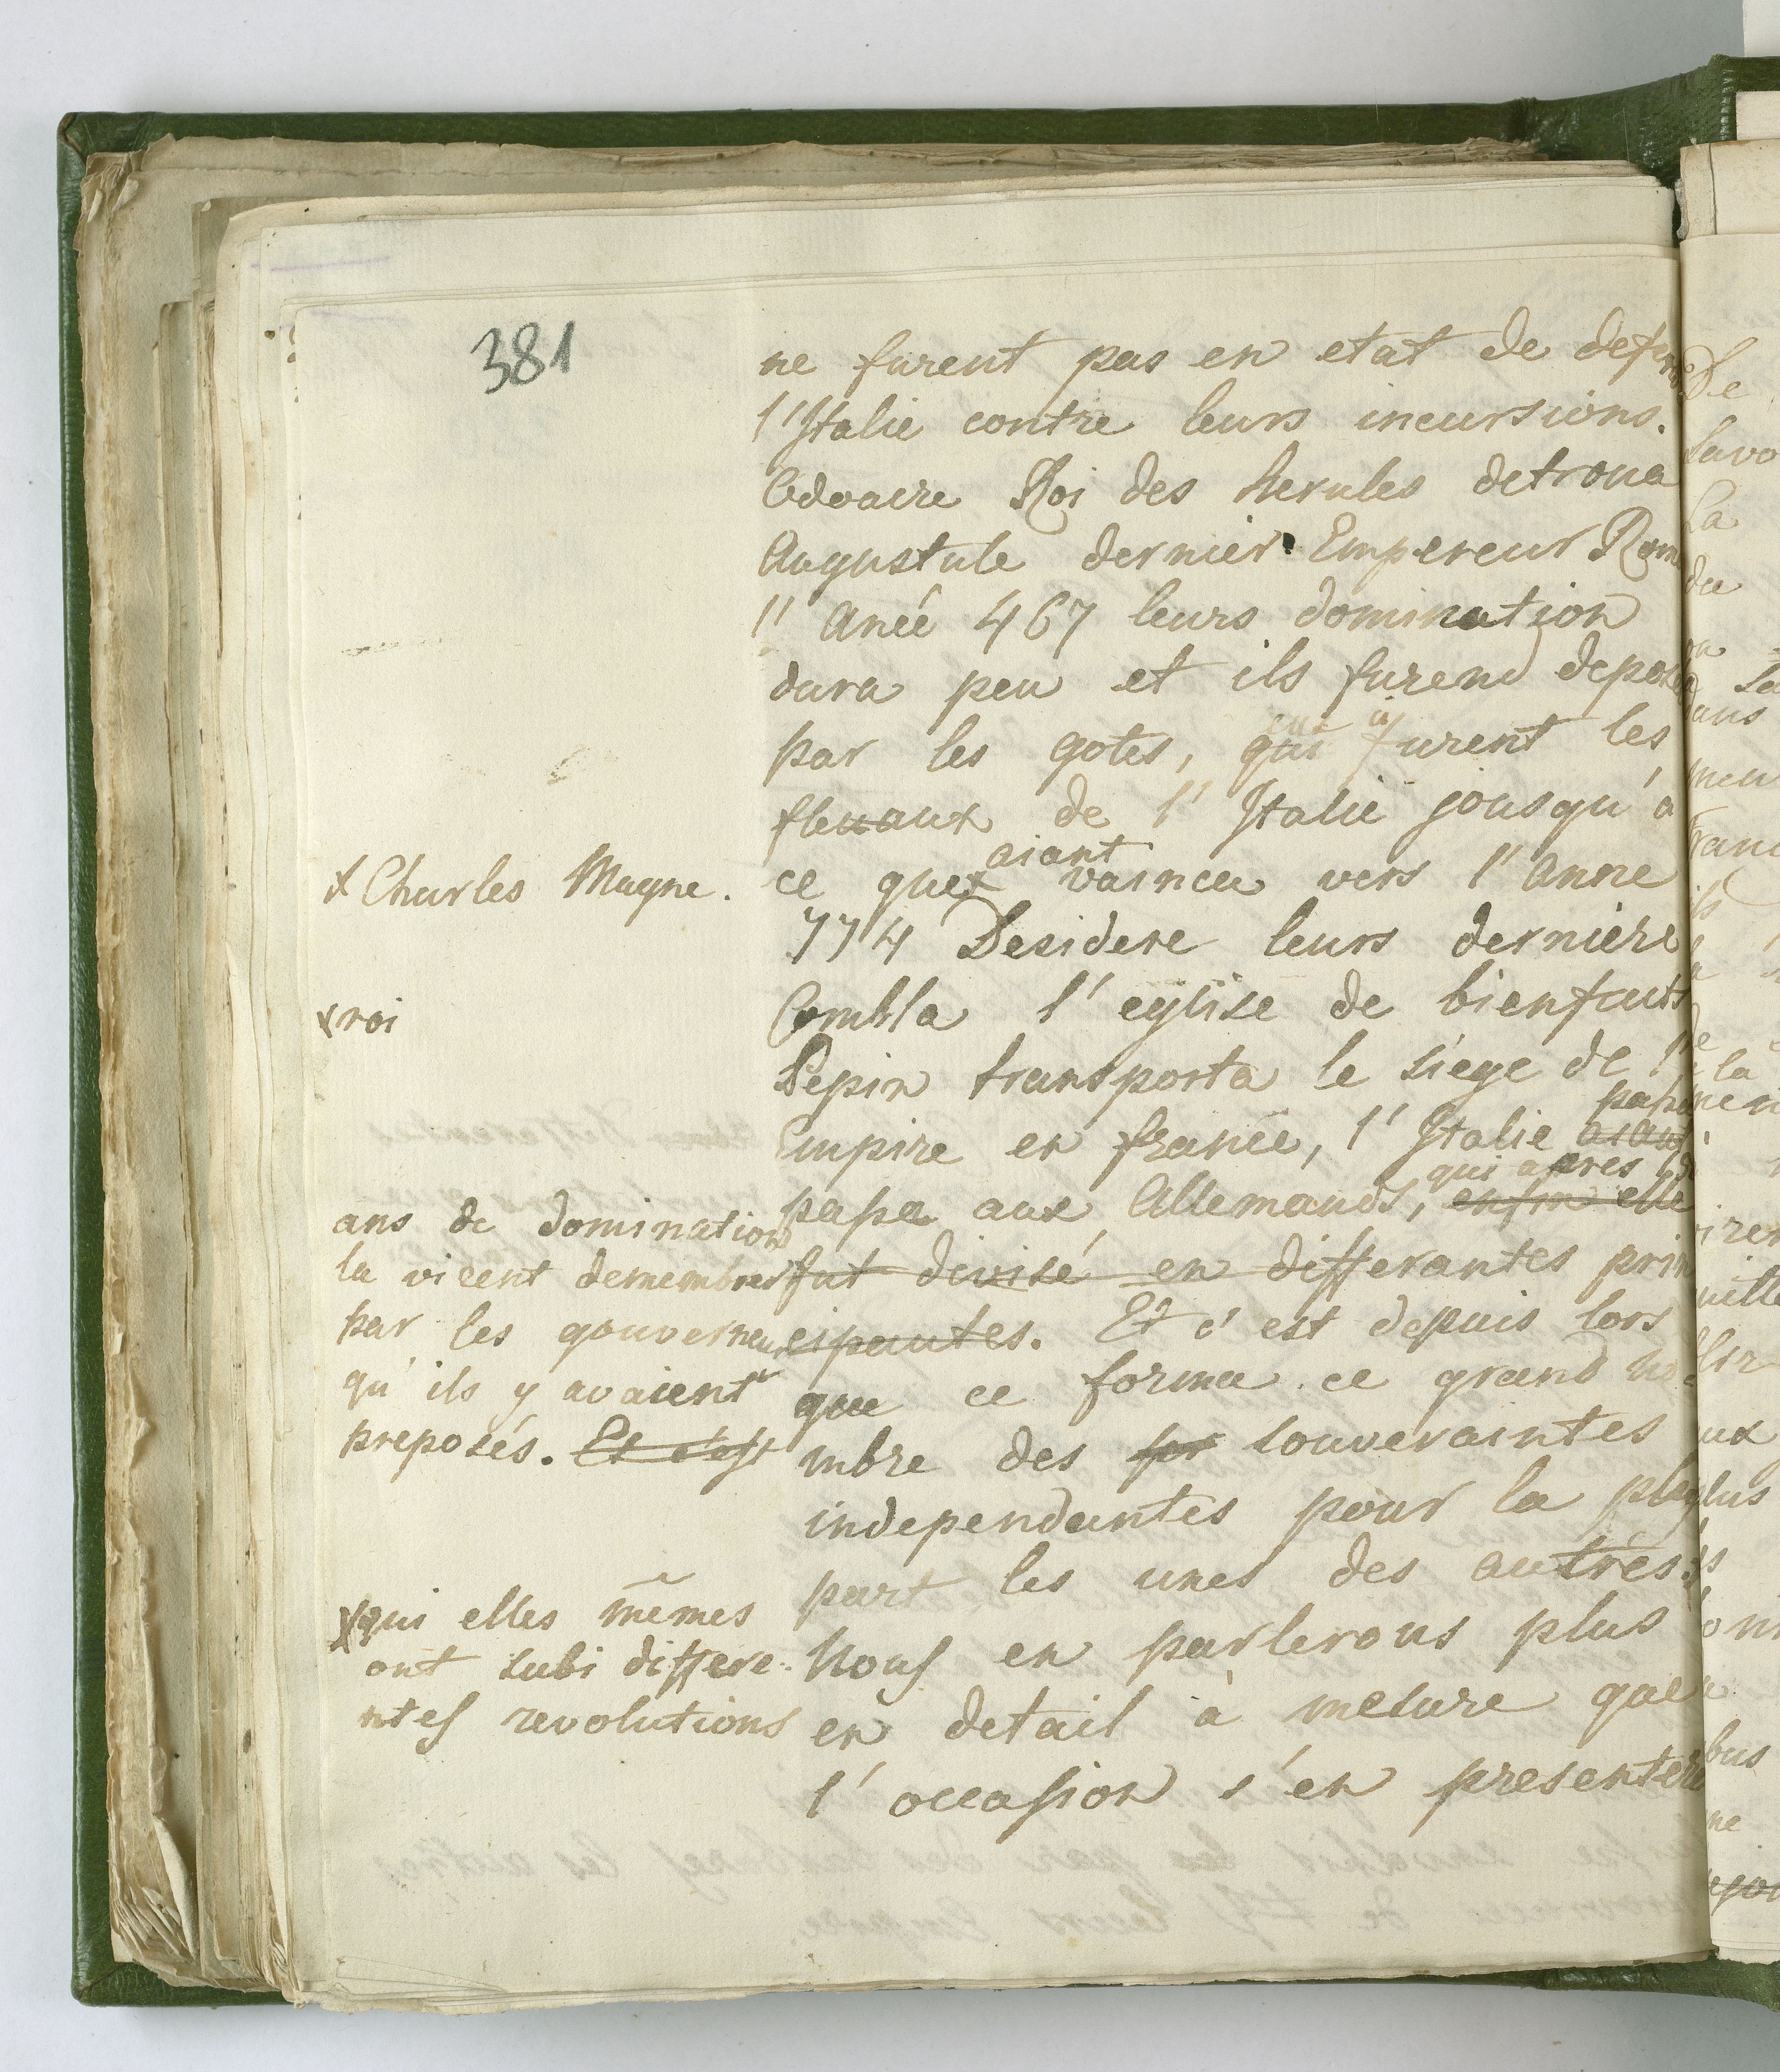 381
ne furent pas en etat de defen
l'Italie contre leurs incursions.
Odoacre Roi des herules detrona
Augustule dernier Empereur Rom
l'Aneé 467 leurs domination
dura peu et ils furend deposé
par les gotes, qui furent les
fleuaux de l'Italie jousqu'à
aiant
x Charles Magne.
ce que x vaincu vers l'Anne
774 Desidere leurs derniere
x roi
Combla l'eglise de bienfaits
Pepin transporta le siege de l'
Empire en france, l'Italie
qui apres
papa aux Allemands, enfin elle
ans de domination
la virent demembres
par les gouverneurs
qu'ils y avaient
preposés. Et c'est
fut divisé en differantes prin
cipautes. Et c'est depuis lors
que ce forma ce grand no
mbre des for souveraintes
independantes pour la plu
part les unes des autres.
x qui elles mêmes
ont subi differe-
ntes revolutions
Nous en parlerons plus
en detail à mesure que
l'occasion s'en presentera